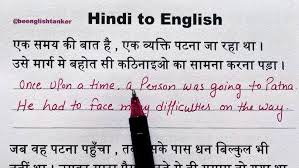 @beenglishtanker
Hindi to English
एक समय की बात है , एक व्यक्ति पटना जा रहा था ।
उसे मार्ग में बहोत सी कठिनाइओ का सामना करना पड़ा ।
Once upon a time, a Person was going to Patna
He had to face many difficulties on the way.
जब वह पटना पहुँचा , उसके पास धन बिल्कुल भी
नहीं था ।